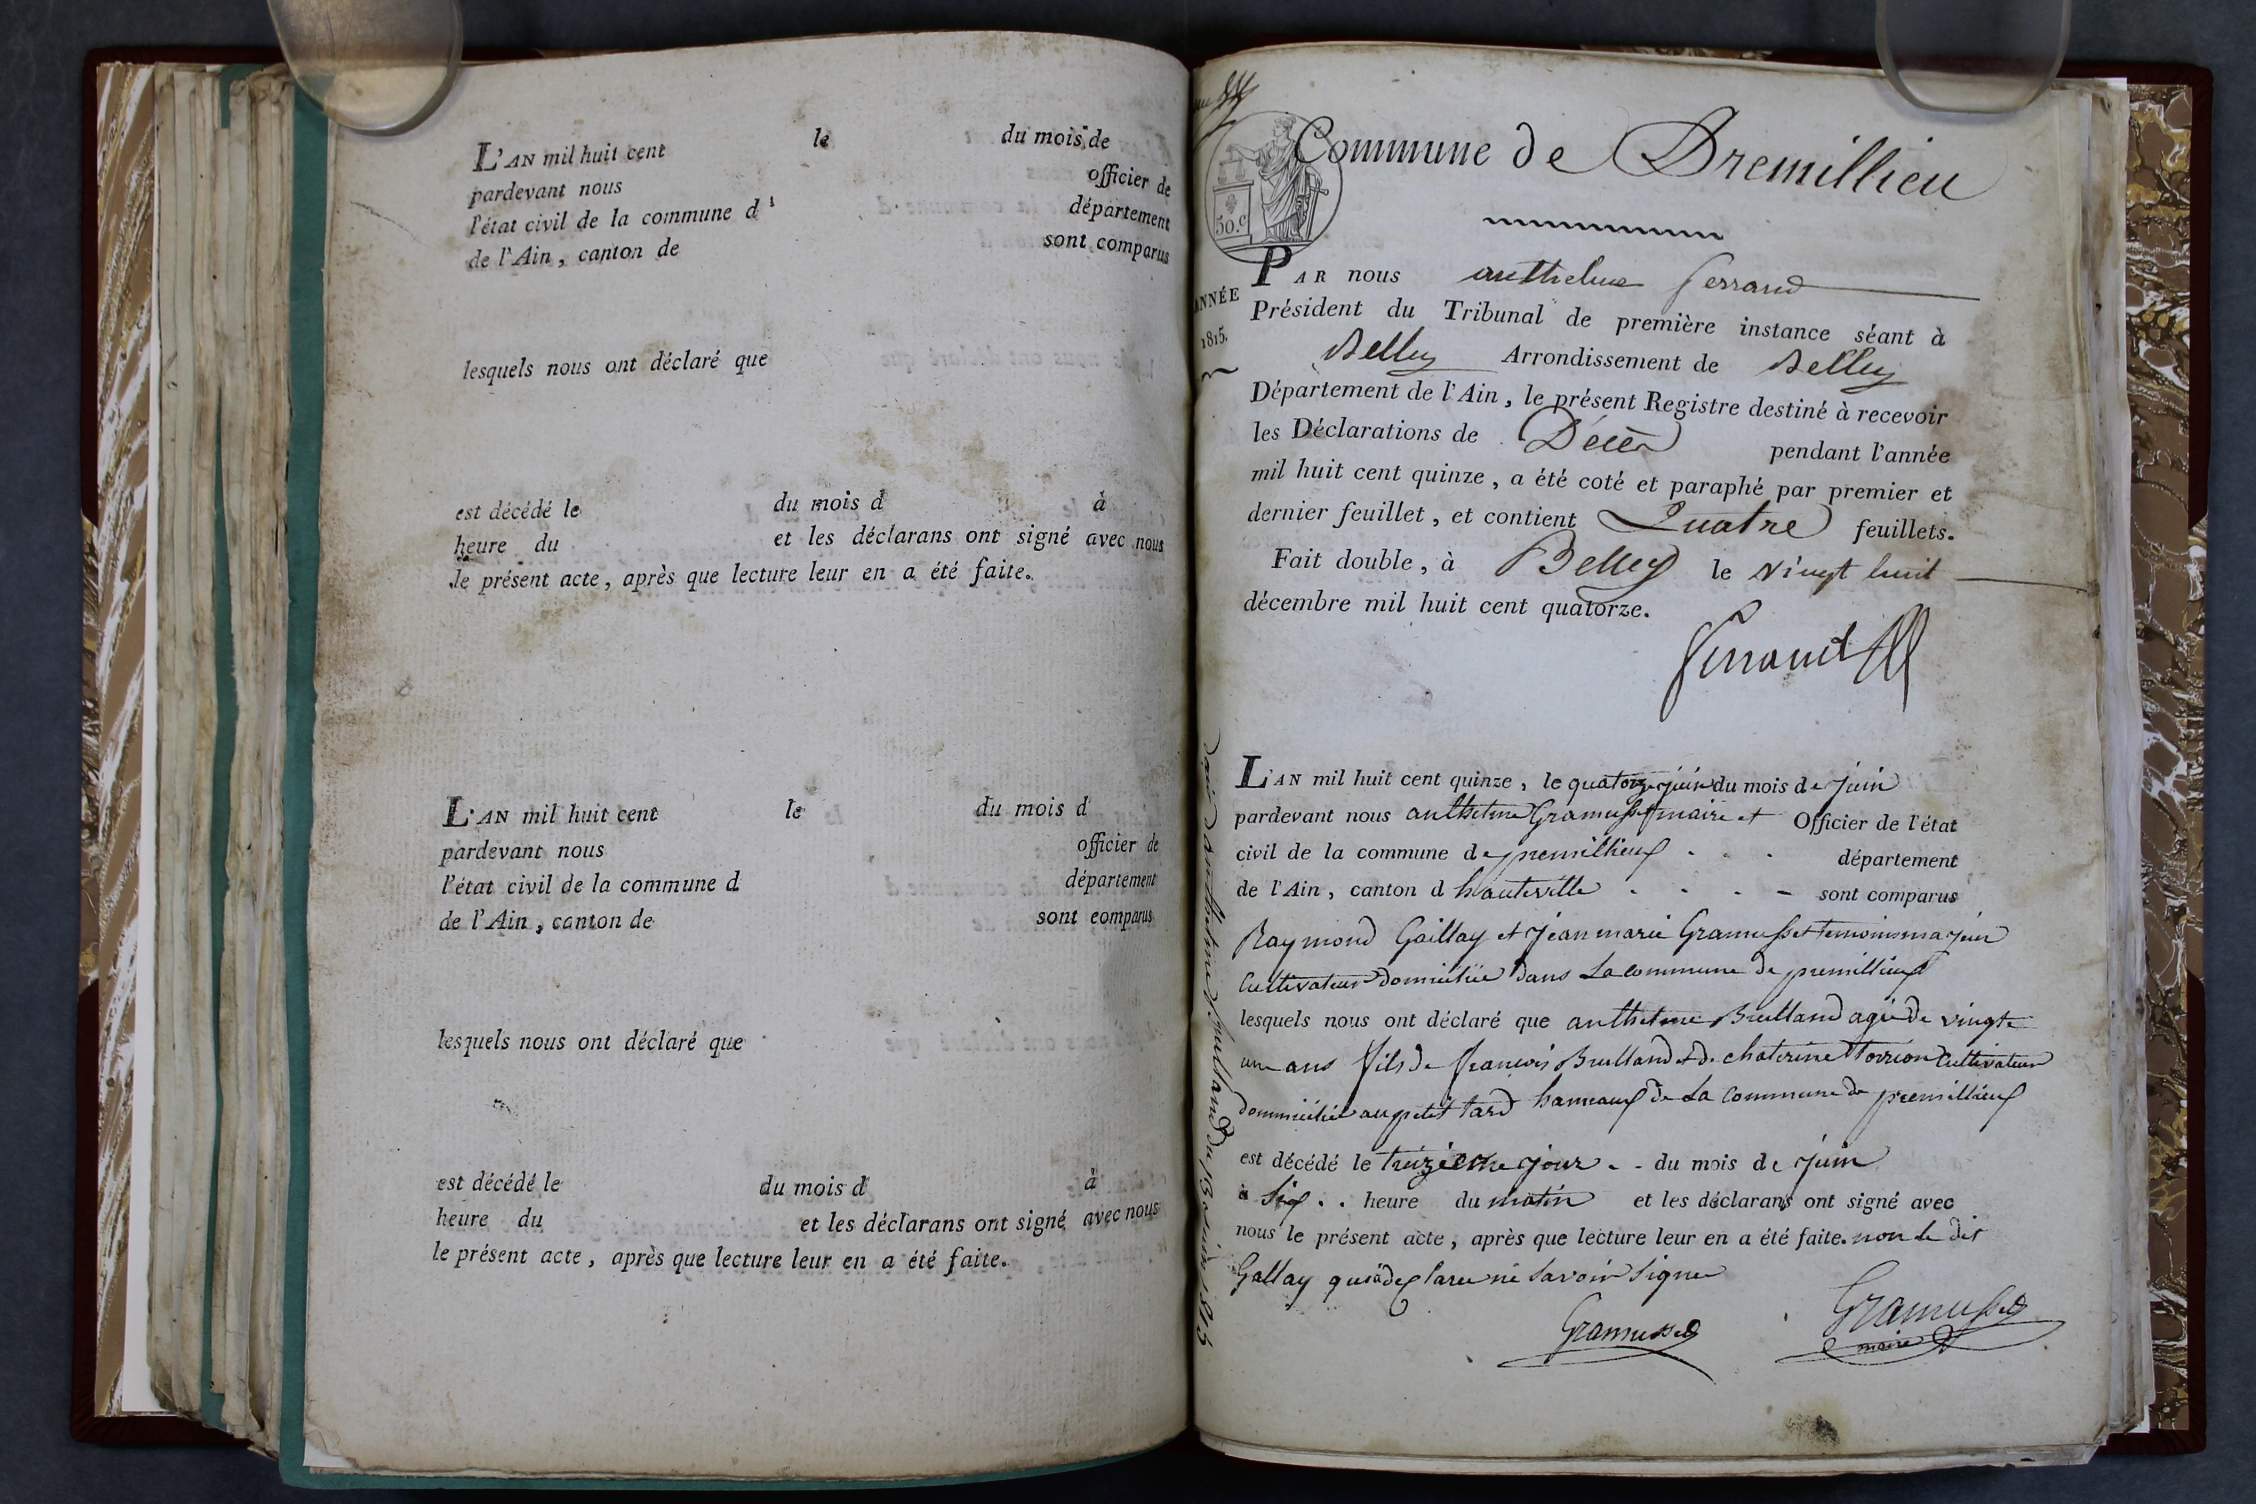 L'AN mil huit cent le du mois de
pardevant nous officier de
l'état civil de la commune d département
de l'Ain, canton de sont comparus
lesquels nous ont déclaré que
est décédé le du mois d à
heure du et les déclarans ont signé avec nous
le présent acte, après que lecture leur en a été faite.
L'AN mil huit cent le du mois d
pardevant nous officier de
l'état civil de la commune d département
de l'Ain, canton de sont comparus
lesquels nous ont déclaré que
est décédé le du mois d à
heure du et les déclarans ont signé avec nous
le présent acte, après que lecture leur en a été faite.
Commune de Premillieu
50.c
ANNÉE
1815.
PAR nous anthelme ferrand
Président du Tribunal de première instance séant à
Belley Arrondissement de Belley
Département de l'Ain, le présent Registre destiné à recevoir
les Déclarations de Décès pendant l'année
mil huit cent quinze, a été coté et paraphé par premier et
dernier feuillet, et contient Quatre feuillets.
Fait double, à Belley le vingt huit
décembre mil huit cent quatorze.
ferrand
L'AN mil huit cent quinze, le quatorze juin du mois de juin
pardevant nous anthelme Gramusset maire et Officier de l'état
civil de la commune de premillieux département
de l'Ain, canton d hauteville sont comparus
Raymond Gallay et jean marie Gramusset temoins majeur
Cultivateur domicilié dans La commune de premillieux
lesquels nous ont déclaré que anthelme Brulland agé de vingt
un ans fils de francois Brulland et de chaterine torrion Cultivateur
dommicilié au petit tard hameaux de La commune de premillieux
est décédé le treizieme jour du mois de juin
à six heure du matin et les déclarans ont signé avec
nous le présent acte, après que lecture leur en a été faite. non le dit
Gallay qui a declaré ne savoir signer
Gramusset
Gramusset
maire